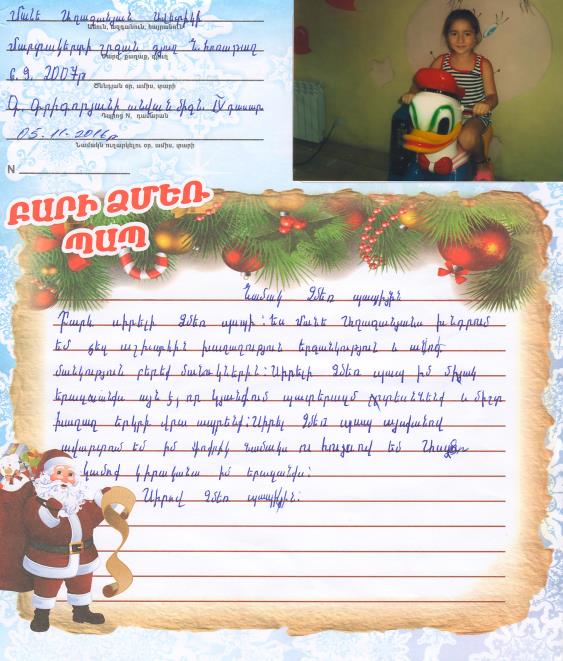 Մանե Աղաջանյան Ավետիկի
Անուն, ազգանուն, հայրանուն
Մարտակերտի շրջան գյուղ Ն. հոռաթաղ
Մարզ, քաղաք, գյուղ
6. 9. 2007թ
Ծննդյան օր, ամիս, տարի
Գ. Գրիգորյանի անվան միջն. IV դասար.
Դպրոց N, դասարան
05. 11. 2016թ
Նամակն ուղարկելու օր, ամիս, տարի
N
ԲԱՐԻ ՁՄԵՌ
ՊԱՊ
Նամակ Ձմեռ պապիին
Բարև սիրելի Ձմեռ պապի: Ես Մանե Աղաջանյանս խնդրում
եմ քեզ աշխարհին խաղաղություն երջանկություն և
մանկություն բերեվ մանուկներին: Սիրելի Ձմեռ պապ իմ միակ
երազանքս այն է, որ կյանքում պատերազմ չլ և միշտ
խաղաղ երկրի վրա ապրենք: Սիրել Ձմեռ պապ այսքանով
ավարտում եմ իմ փոքրիկ նամակս ու հուսով եմ Աստծո
կամոք կիրականա իմ երազանքս:
Սիրով Ձմեռ պապիին: